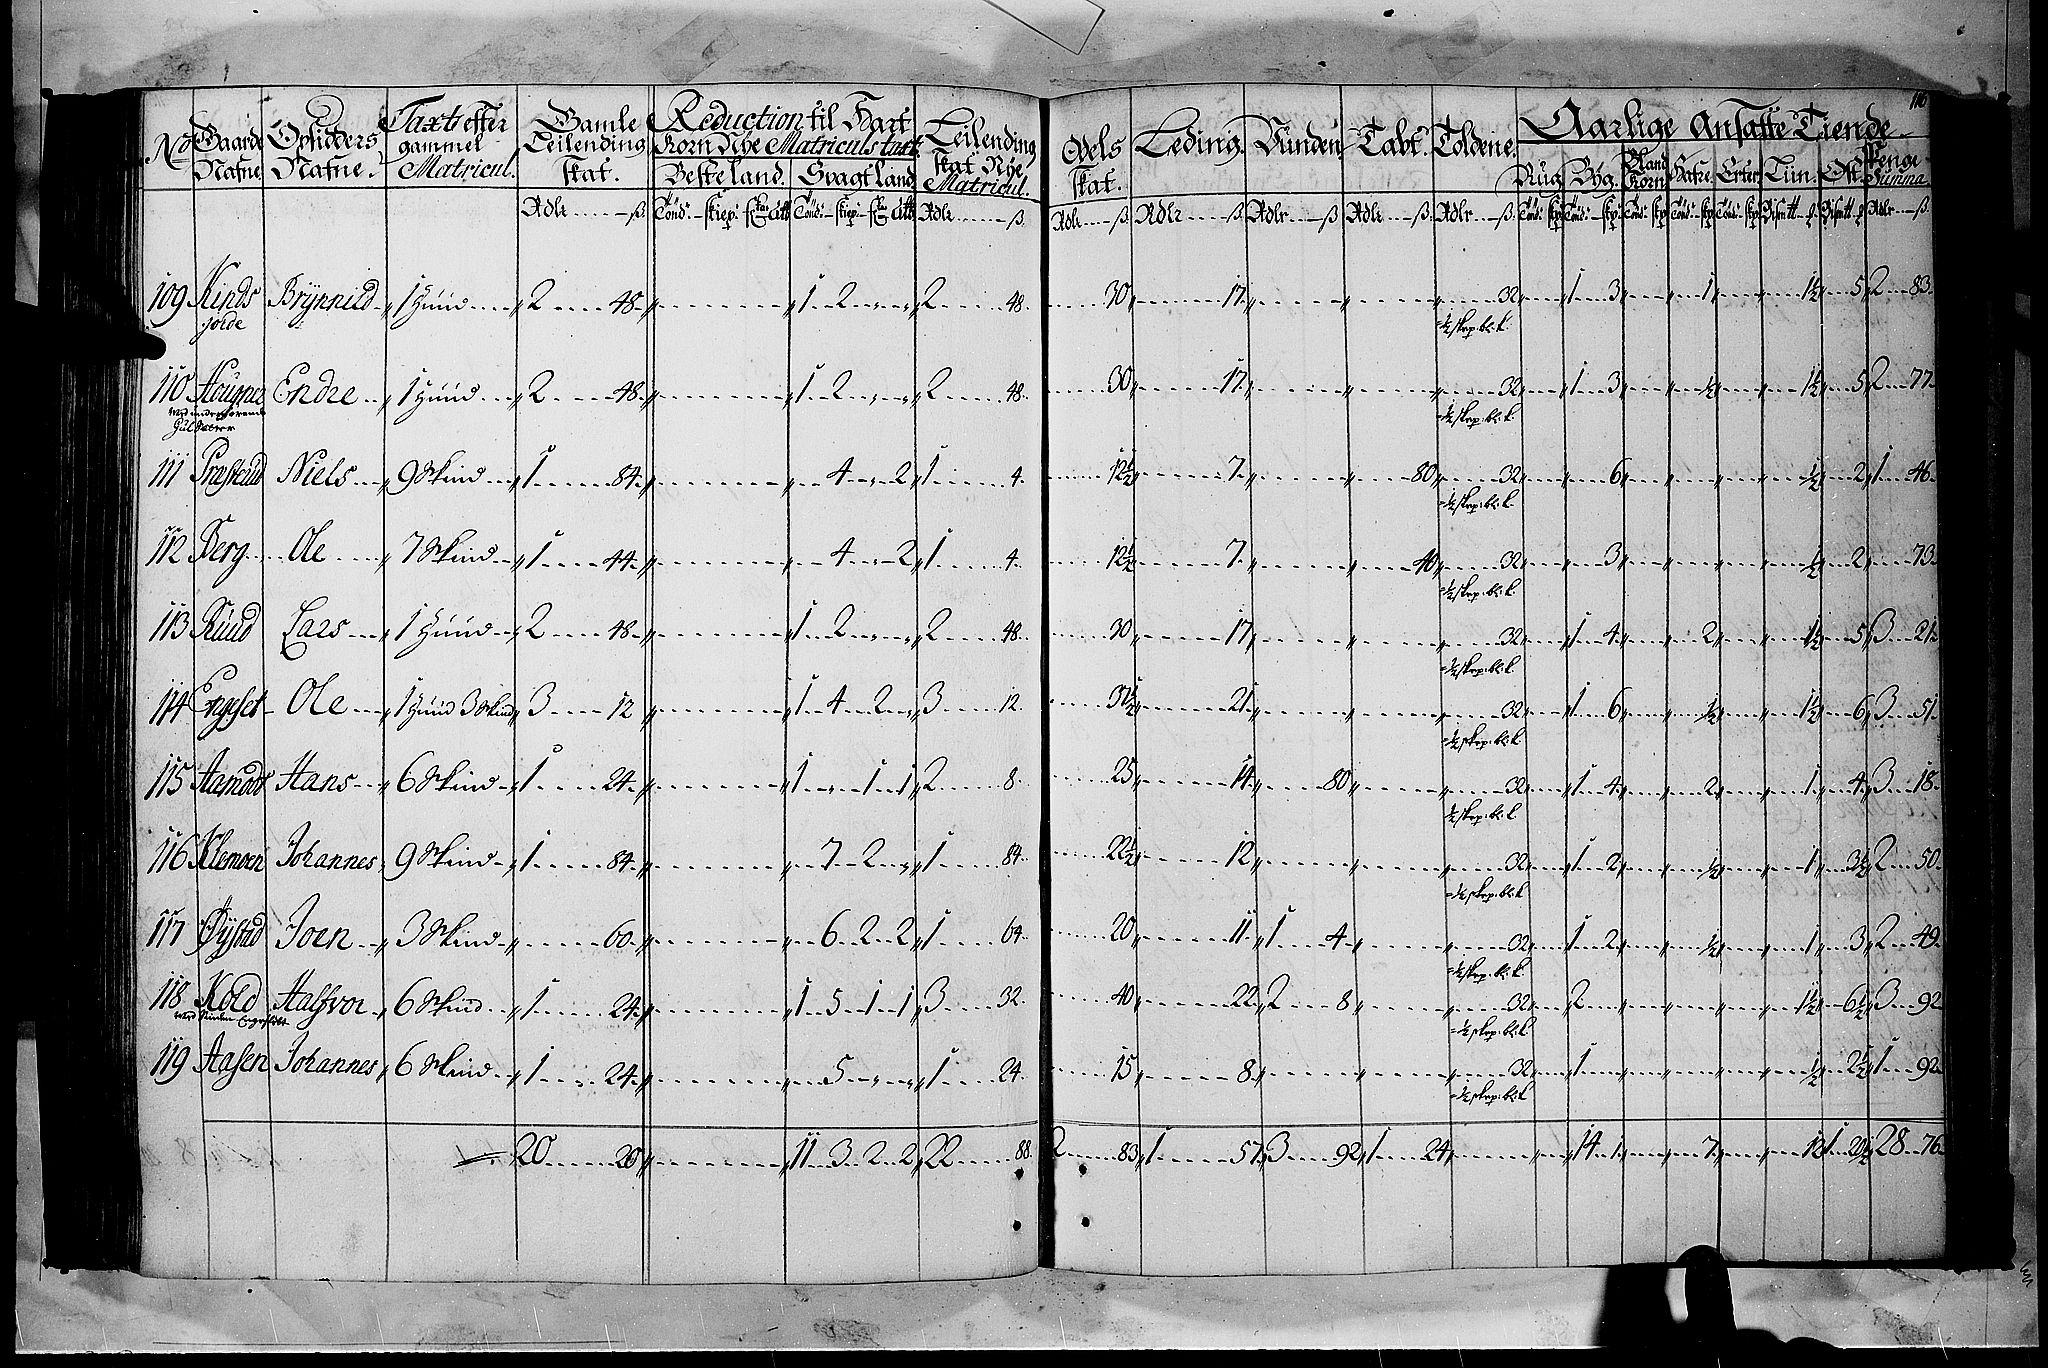 110
No Gaarde Nafne Opsidders Nafne. Taxt efter gammel Matricul. Gamle Leilending skat. Reduction til Hart Korn Nye Matriculs taxt. Leilending skat Nye Matricul. Odels skat. Leding. Vunden Tabt. Toldene. Aarlige Ansatte Tiende
Beste land. Svagt land. Rug Byg. Bland Korn Hafre. Erter. Lin. Ost. Penge Summa
Rdlr ß Tönd: skiep: Tönd: skiep: Rdlr ß Rdlr ß Rdlr ß Rdlr ß Rdlr ß Rdlr ß Tönd: skp Tönd: skp Tönd: skp Tönd: skp Tönd: skp Rdlr ß
109 Hindsjorde Brynnild 1 Huud 2 48 1 2 2 48 30 17 32 1 3 1 1½ 5 2 83
½ skp: bl: k.
110 Endre 1 Huud 2 48 1 2 2 48 30 17 32 1 3 ½ 1½ 5 2 77
½ skp: bl: k.
111 Præstrud Niels 9 Skind 1 84 4 2 1 4 12½ 7 80 32 6 ½ 2 1 46
½ skp: bl: k.
112 Berg Ole 7 Skind 1 44 4 2 1 4 12½ 7 40 32 3 ½ 2 73
½ skp: bl: k.
113 Ruud Lars 1 Huud 2 48 1 2 2 48 30 17 32 1 4 2 1½ 5 3 21
½ skp: bl: k.
114 Engeset Ole 1 Huud 3 Skind 3 12 1 4 2 3 12 37½ 21 32 1 6 ½ 1½ 6 3 51
½ skp: bl: k.
115 Aamodt Hans 6 Skind 1 24 1 1 1 2 8 25 14 80 32 1 4 2 1 4 3 18
½ skp: bl: k
116 Klemoen Johannes 9 Skind 1 84 7 2 1 84 22½ 12 32 1 2 ½ 1 3½ 2 50
½ skp: bl: k
117 Øystad Joen 3 Skind 60 6 2 2 1 64 20 11 1 4 32 1 2 ½ 1 3 2 49
½ skp: bl: k.
118 Kold Halfvor 6 Skind 1 24 1 5 1 1 3 32 40 22 2 8 32 2 1½ 6½ 3 92
½ skp: bl: k.
119 Aasen Johannes 6 Skind 1 24 5 1 24 15 8 32 1 ½ 2½ 1 92
½ skp: bl: k
20 20 11 3 2 2 22 88 2 83 1 57 3 92 1 24 14 1 7 12 1 20½ 28 76